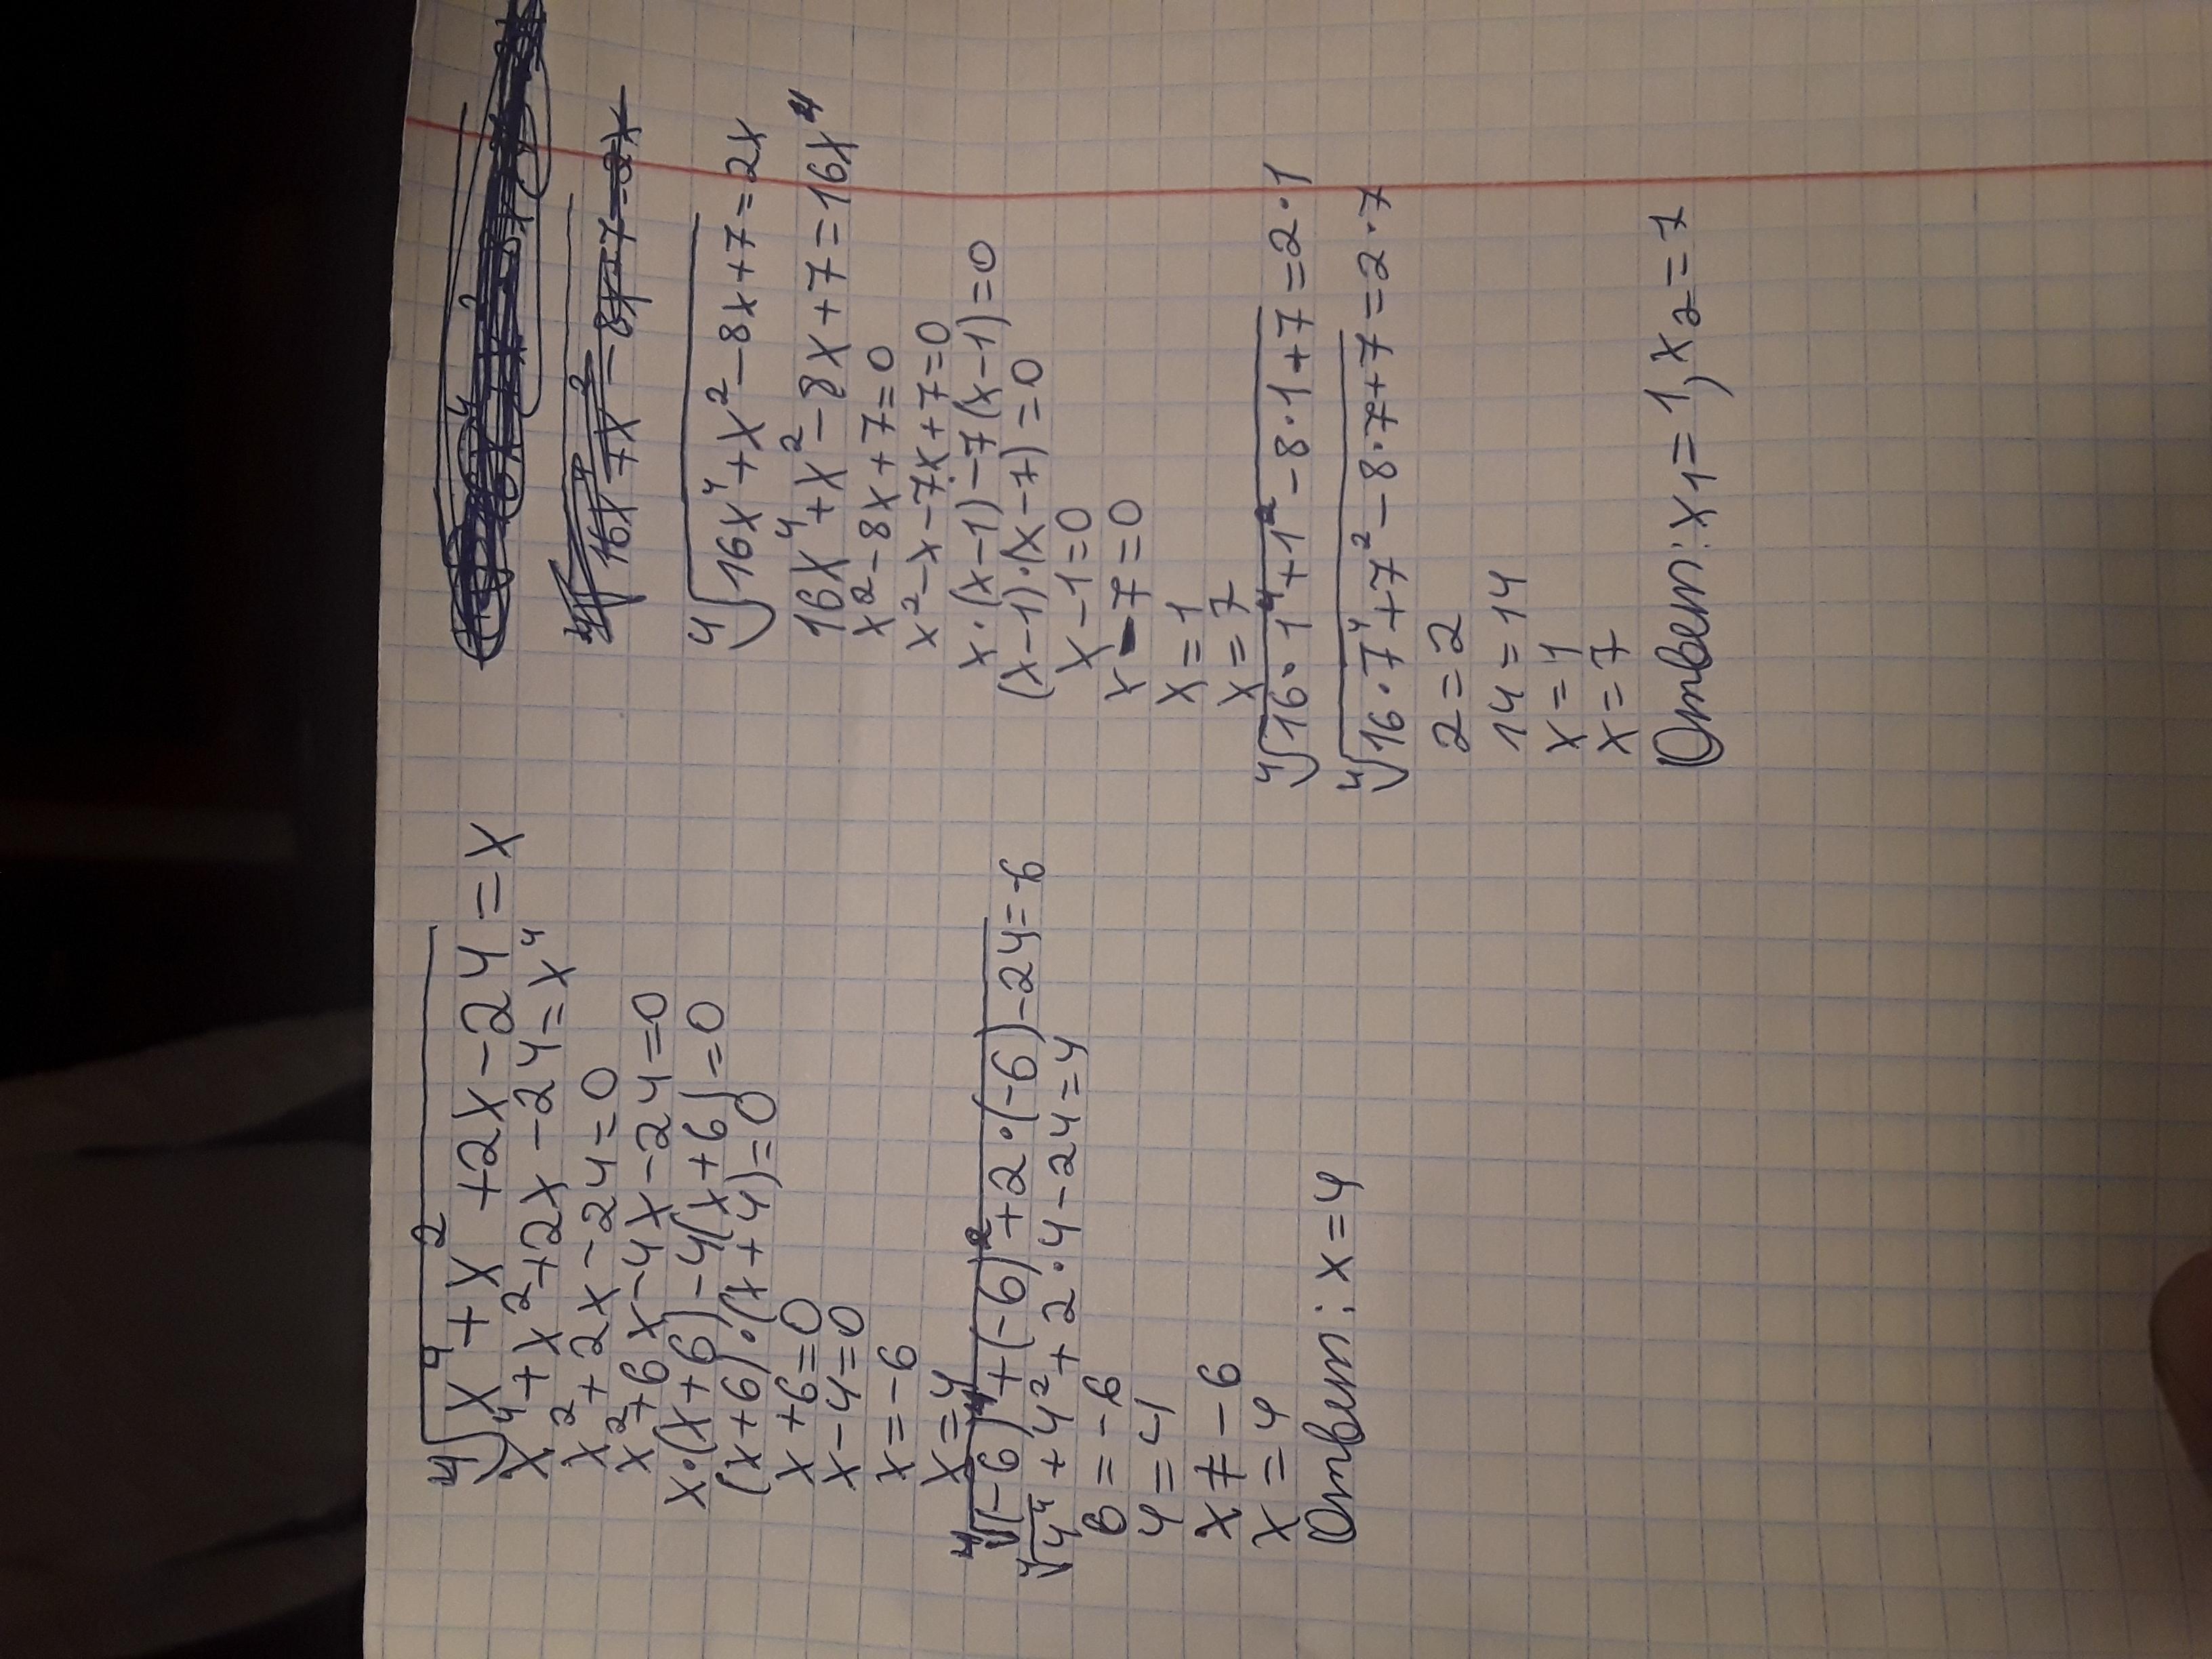 ⁴√(x⁴+x²+2x-24)=x
x⁴+x²+2x-24=x⁴
x²+2x-24=0
x²+6x-4x-24=0
x·(x+6)-4(x+6)=0
(x+6)·(x+4)=0
x+6=0
x-4=0
x=-6
x=4
⁴√((-6)⁴+(-6)²+2·(-6)-24)=-6
⁴√(4⁴+4²+2·4-24)=4
6=-6
4=4
x≠-6
x=4
Ответ: x=4
⁴√(16x⁴+x²-8x+7)=2x
⁴√(16x⁴+x²-8x+7)=2x
16x⁴+x²-8x+7=16x⁴
x²-8x+7=0
x²-x-7x+7=0
x·(x-1)-7(x-1)=0
(x-1)·(x-7)=0
x-1=0
x-7=0
x=1
x=7
⁴√(16·1⁴+1²-8·1+7)=2·1
⁴√(16·7⁴+7²-8·7+7)=2·7
2=2
14=14
x=1
x=7
Ответ: x₁=1, x₂=7